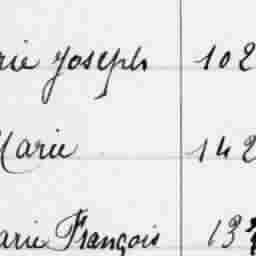 rie Joseph 102
Marie 142
arie François 13